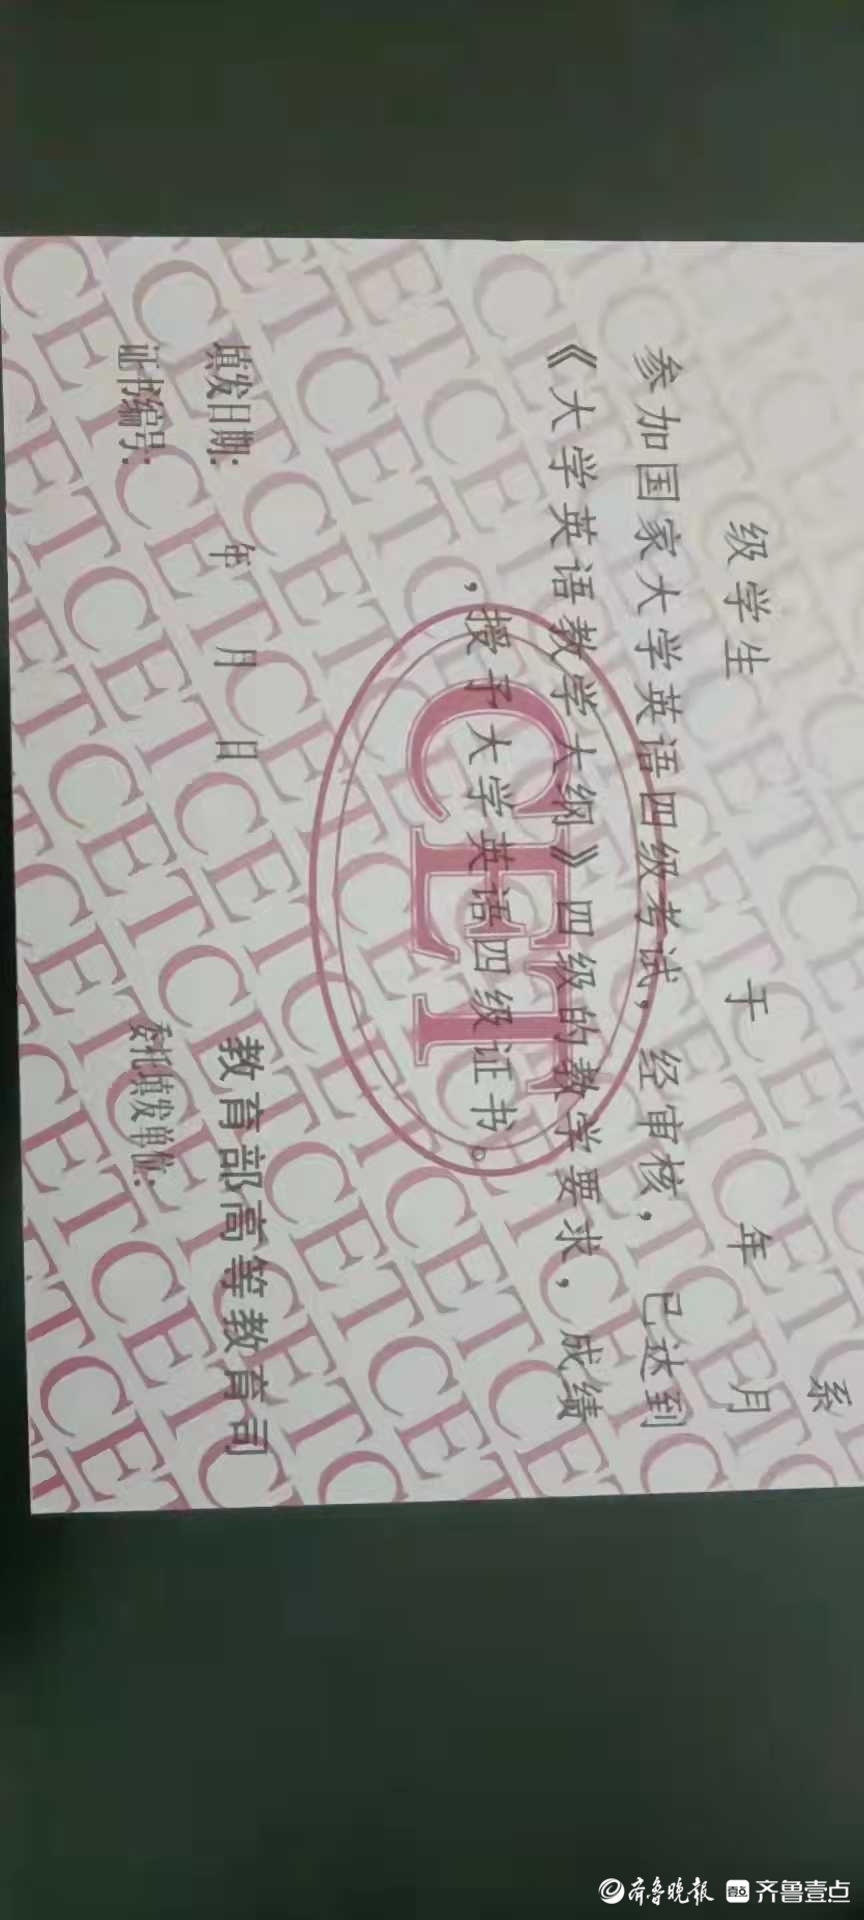 系
级学生 于 年 月
参加国家大学英语四级考试，经审核，已达到
《大学英语教学大纲》四级的教学要求，成绩
，授予大学英语四级证书。
CET
教育部高等教育司
填发日期： 年 月 日
委托填发单位：
证书编号：
齐鲁晚报 齐鲁壹点